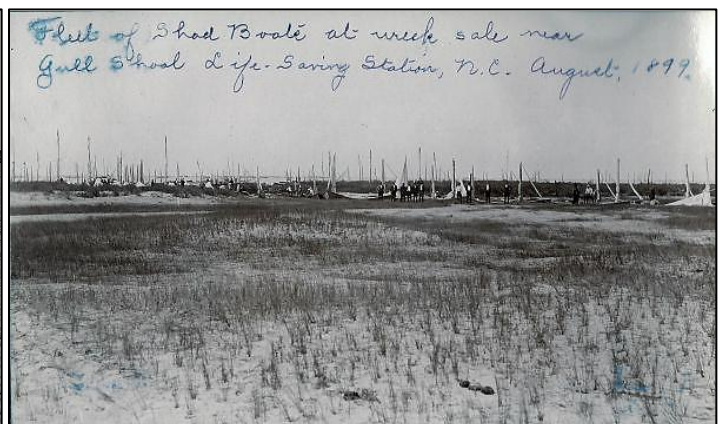 Fleet of Shad Boats at wreck sale near
Gull Shoal Life-Saving Station, N.C. August, 1899.